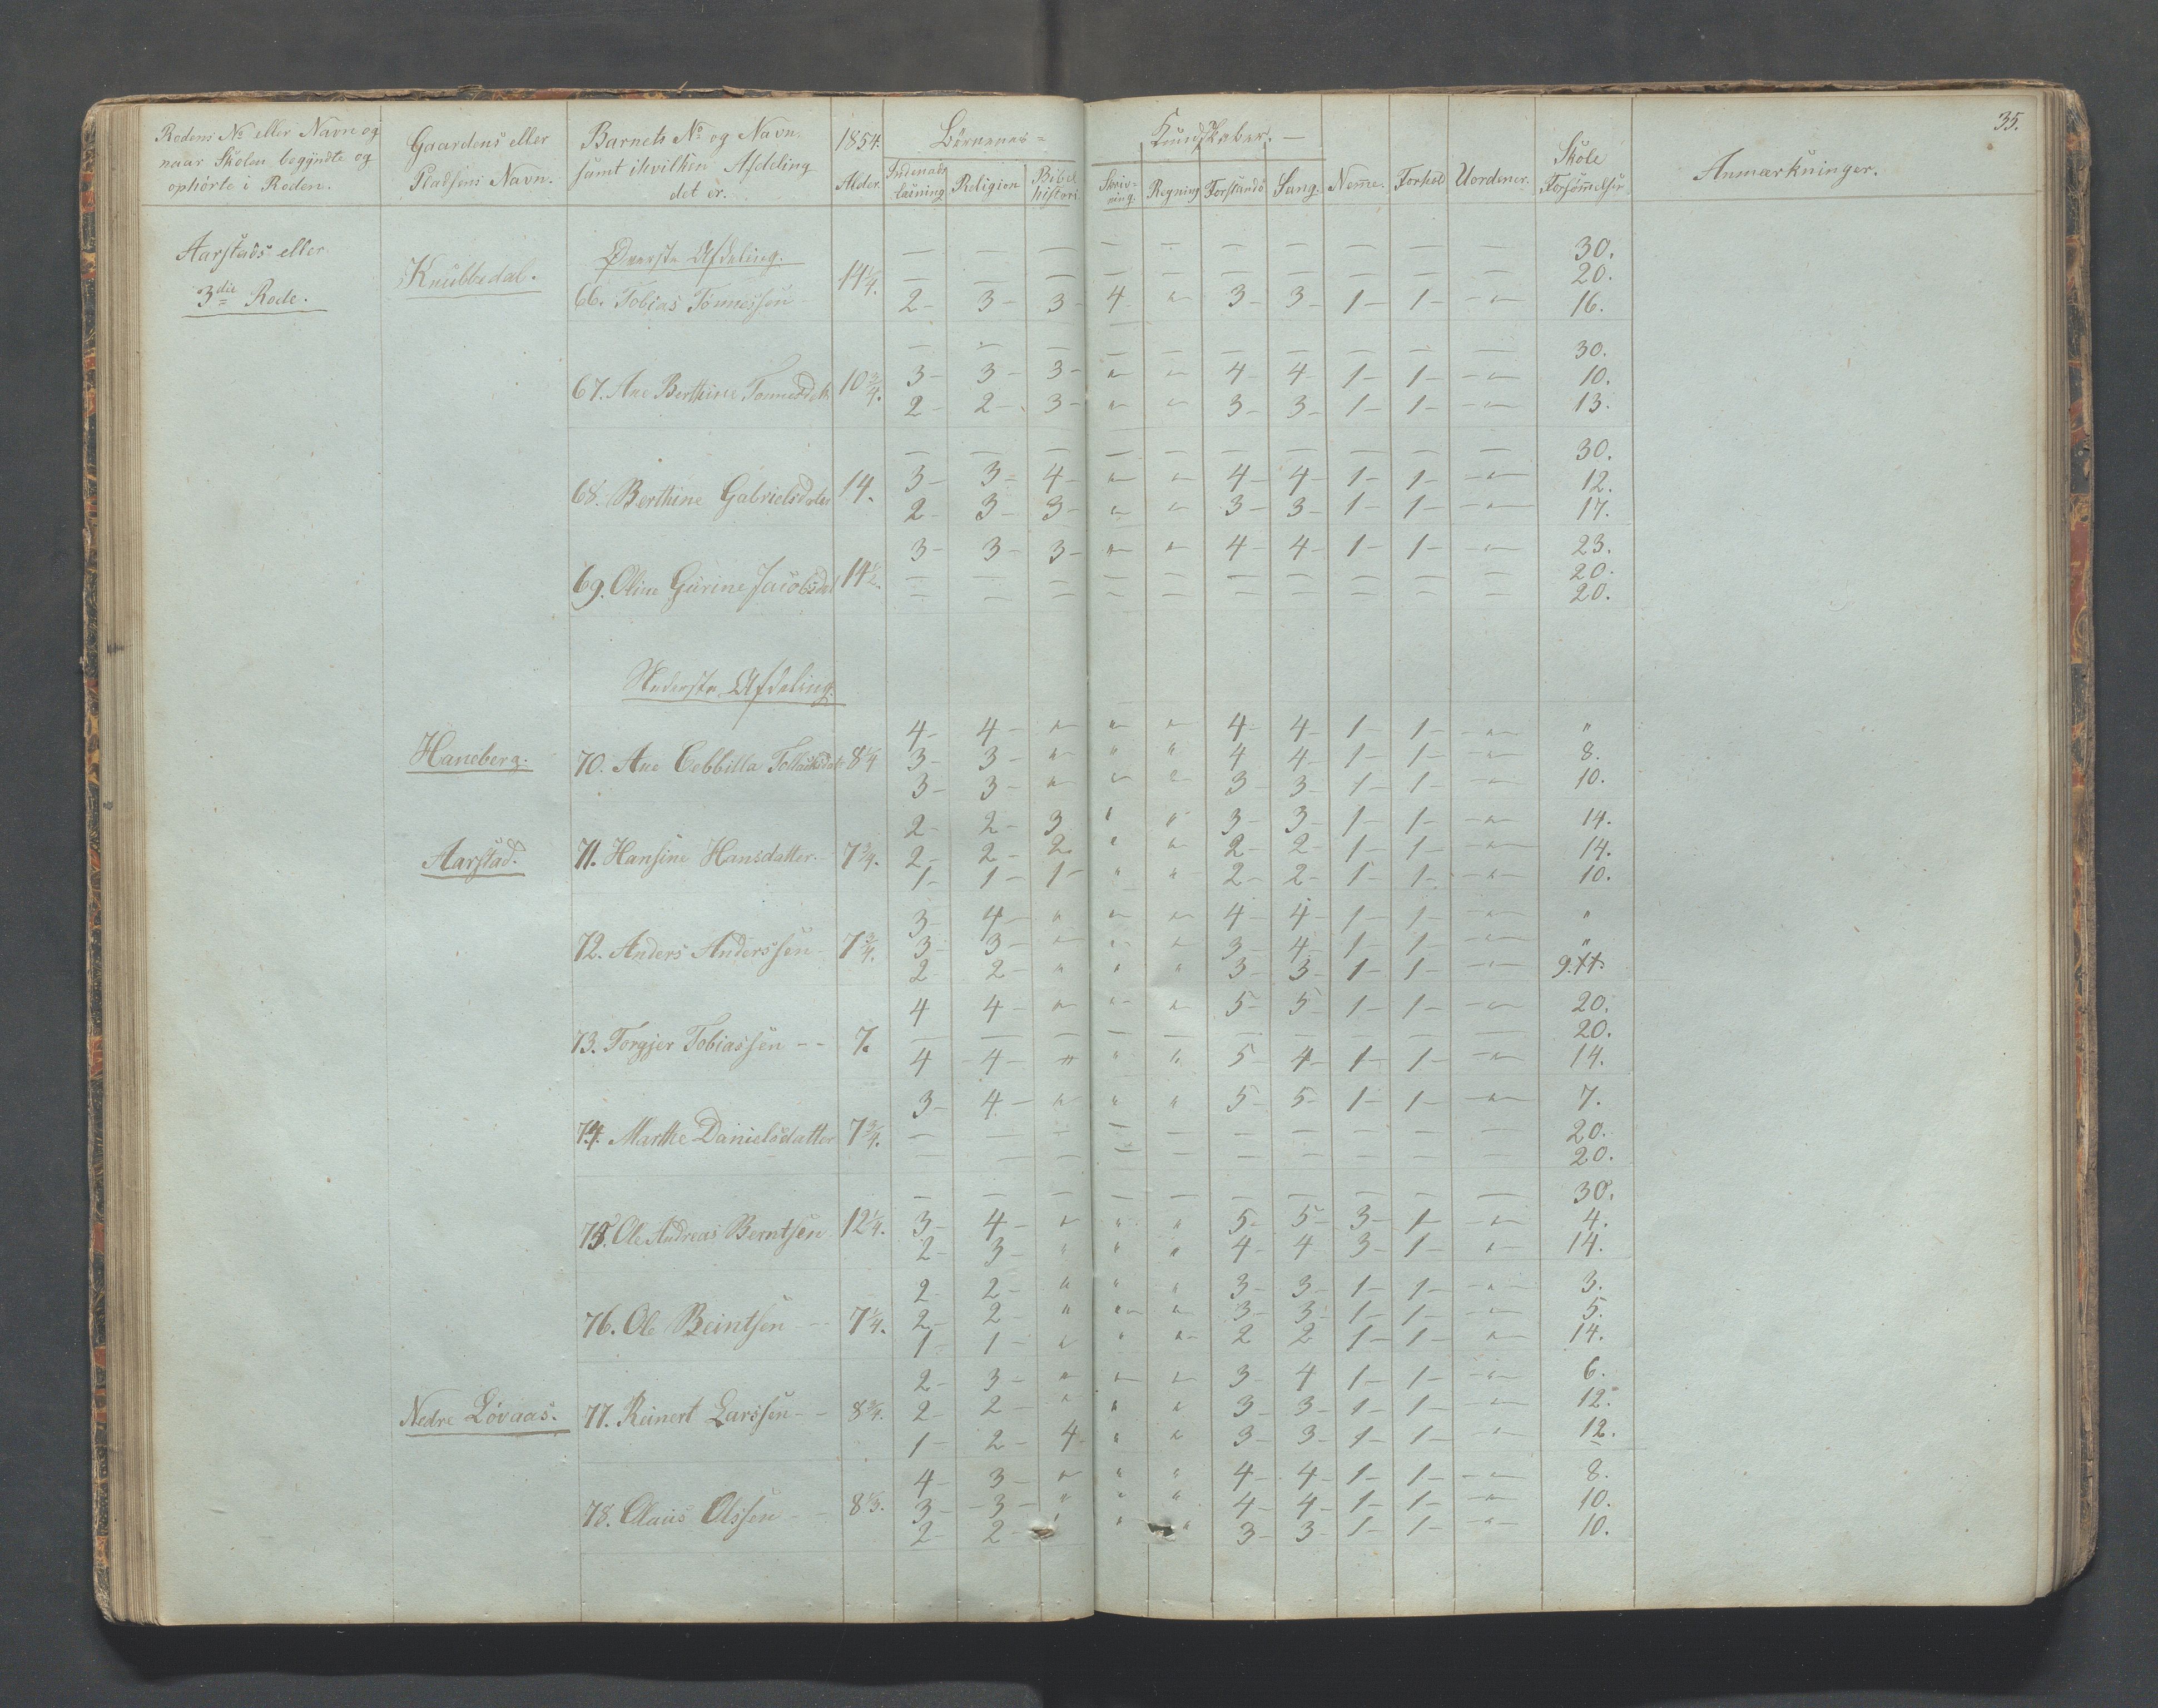 35.
Rodens No eller Navn og
naar Skolen begyndte og
ophörte i Roden.
Gaardens eller
Pladsens Navn.
Barnets No og Navn.
samt ihvilken Afdeling
det er.
1854.
Alder.
Börnenes =
Kundskaber. —
Indenads
læsning
Religion
Bibel
histori
Skriv-
ning.
Regning
Forstands
Sang.
Nemme.
Forhold
Uordener.
Skole
Forsömmelser
Anmærkninger.
Aarstads eller
3die Rode.
Knubbedal.
Överste Afdeling.
— — — — — — — — — — 30.
— — — — — — — — — — 20.
66. Tobias Tönnessen 14 1/4. 2 – 3 – 3 – 4 " 3 – 3 – 1 – 1 – – " – 16.
— — — — — — — — — — 30.
3 – 3 – 3 – " " 4 – 4 – 1 – 1 – – " – 10.
67. Ane Berthine Tönnesdtr 10 3/4. 2 – 2 – 3 – " " 3 – 3 – 1 – 1 – – " – 13.
— — — — — — — — — — 30.
3 – 3 – 4 – " " 4 – 4 – 1 – 1 – – " – 12.
68. Berthine Gabrielsdatter 14. 2 – 3 – 3 – " " 3 – 3 – 1 – 1 – – " – 17.
3 – 3 – 3 – " " 4 – 4 – 1 – 1 – – " – 23.
69. Oline Gurine Jacobsdat 14 1/2. — — — — — — — — — — 20.
— — — — — — — — — — 20.
Nederste Afdeling.
4 – 4 – " " " 4 – 4 – 1 – 1 – – " – "
Haneberg. 70. Ane Cebbilla Tollaksdatr 8 1/4 3 – 3 – " " " 4 4 – 1 – 1 – – " – 8.
3 – 3 – " " " 3 – 3 – 1 – 1 – – " – 10.
2 – 2 – 3 " " 3 – 3 – 1 – 1 – – " – 14.
Aarstad. 71. Hansine Hansdatter. 7 3/4. 2 – 2 – 2 " " 2 – 2 – 1 – 1 – – " – 14.
1 – 1 – 1 – " " 2 – 2 – 1 – 1 – – " – 10.
3 – 4 – " " " 4 – 4 – 1 – 1 – – " – "
72. Anders Anderssen – 7 3/4. 3 – 3 – " " " 3 – 4 – 1 – 1 – – " – "
2 2 – " " " 3 – 3 – 1 – 1 – – " – 9.
4 4 – " " " 5 – 5 1 – 1 – – " – 20.
73. Torgjer Tobiassen – – 7. — — — — — — — — — — 20.
4 – 4 – " " " 5 – 4 – 1 – 1 – – " – 14.
3 – 4 – " " " 5 – 5 – 1 – 1 – – " – 7.
74. Marthe Danielsdatter 7 3/4. — — — — — — — — — — 20.
— — — — — — — — — — 20.
— — — — — — — — — — 30.
75. Ole Andreas Berntsen 12 1/4. 3 – 4 – " " " 5 – 5 – 3 – 1 – – " – 4.
2 – 3 – " " " 4 – 4 3 – 1 – " – 14.
2 – 2 – " " " 3 – 3 – 1 – 1 – – " – 3.
76. Ole Beintsen – – 7 1/4. 2 – 2 – " " " 3 – 3 – 1 – 1 – – " – 5.
1 – 1 – " " " 2 2 1 – 1 – " – 14.
2 – 3 – " " " 3 – 4 1 – 1 – – " – 6.
Nedre Lövaas. 77. Reinert Larssen – – 8 3/4. 2 – 2 – " " " 3 – 3 – 1 – 1 – – " – 12.
1 – 2 – 4 " " 3 – 3 – 1 – 1 – – " – 12.
4 – 3 – " " " 4 – 4 – 1 – 1 – – " – 8.
78. Olaus Olssen – – 8 1/3. 3 – 3 – " " " 4 – 4 – 1 – 1 – – " – 10.
2 – 2 – " " " 3 – 3 – 1 – 1 – – " – 10.